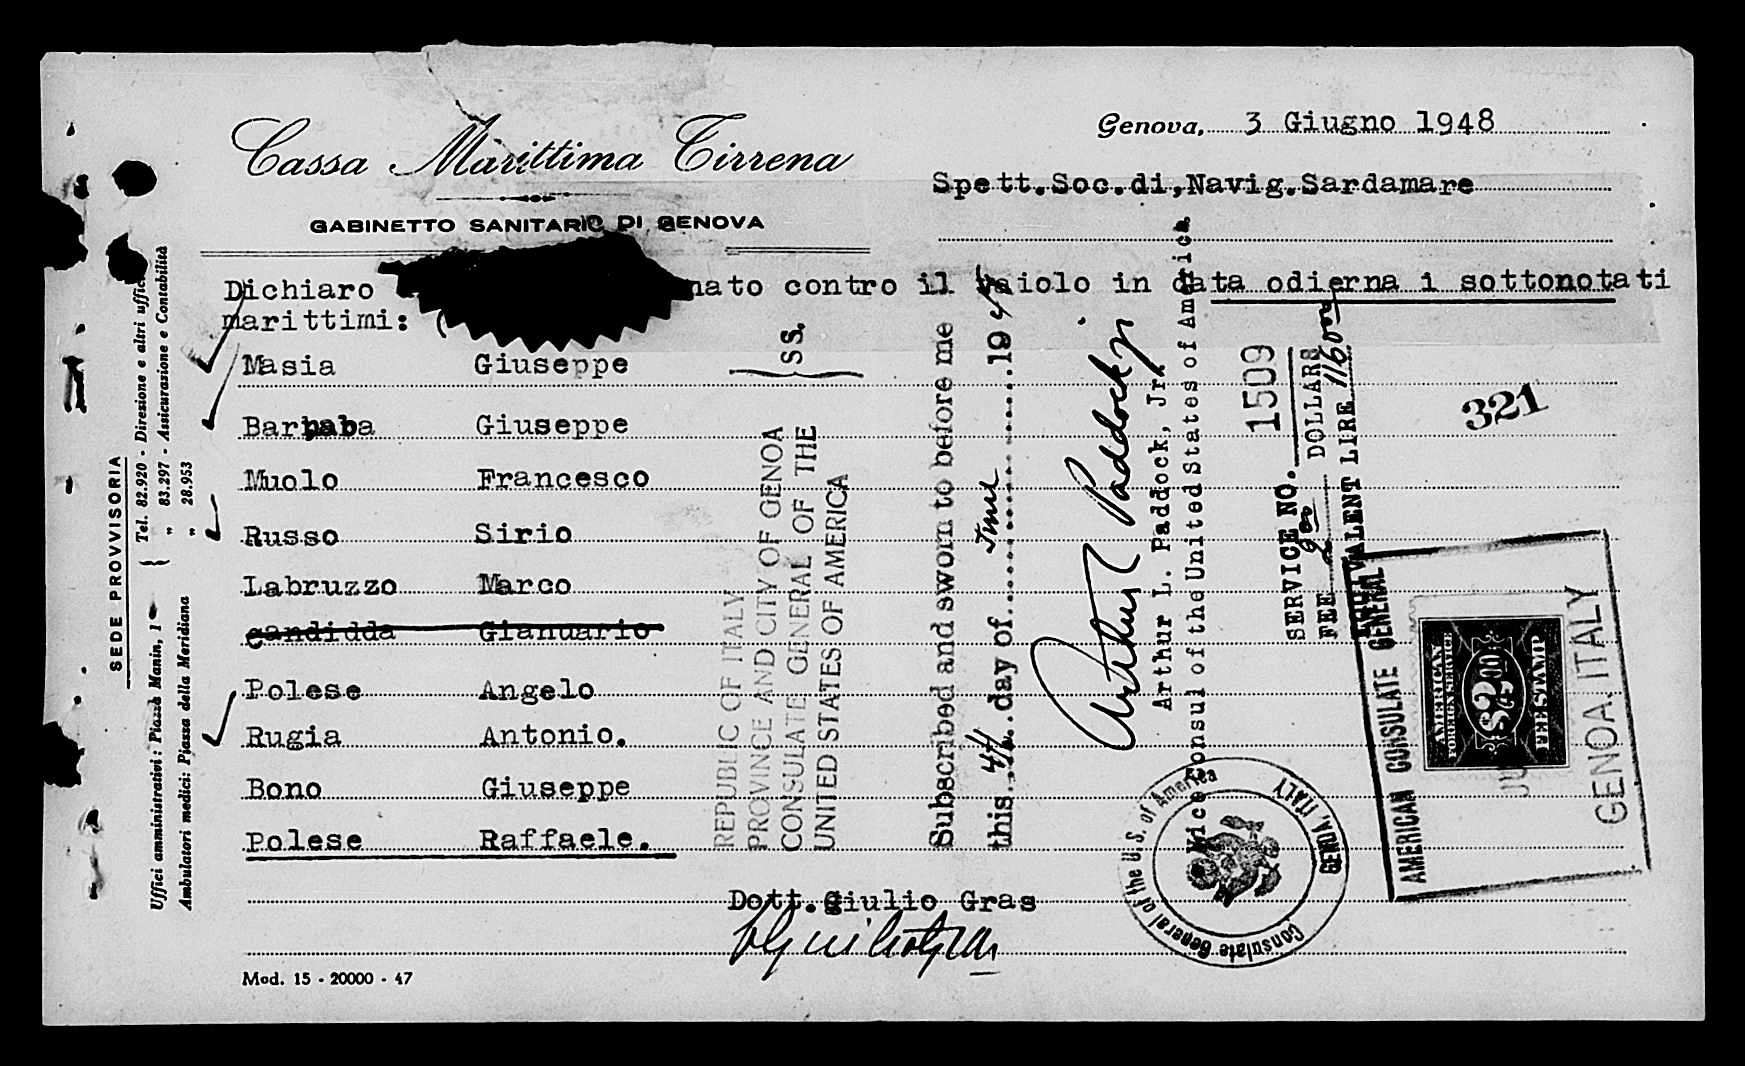 Cassa Marittima Tirrena
GABINETTO SANITARIO DI GENOVA
Genova, 3 Giugno 1948
Spett.Soc.di,Navig.Sardamare
Dichiaro nato contro il vaiolo in data odierna i sottonotati
marittimi: (
Masia Giuseppe
Barnaba Giuseppe
Muolo Francesco
Russo Sirio
Labruzzo Marco
Candidda Gianuario
Polese Angelo
Rugia Antonio.
Bono Giuseppe
Polese Raffaele.
Dott.Giulio Gras
Mod. 15 - 20000 - 47
SEDE PROVVISORIA
Uffici amministrativi: Piazza Manin, 1 Tel. 82.920 - Direzione e altri uffici
" 83.297 - Assicurazione e Contabilità
Ambulatori medici: Piazza della Meridiana " 28.953
REPUBLIC OF ITALY
PROVINCE AND CITY OF GENOA
CONSULATE GENERAL OF THE
UNITED STATES OF AMERICA
} SS.
Subscribed and sworn to before me
this 4th day of June 194
Arthur L Paddock Jr
Arthur L. Paddock, Jr.
Vice Consul of the United States of America
SERVICE NO. 1509
FEE 2 00 DOLLARS
EQUIVALENT LIRE 1160
321
Consulate General of the U.S. of America
GENOA, ITALY
AMERICAN CONSULATE GENERAL
GENOA. ITALY
AMERICAN
FOREIGN SERVICE
$2.00
FEE STAMP